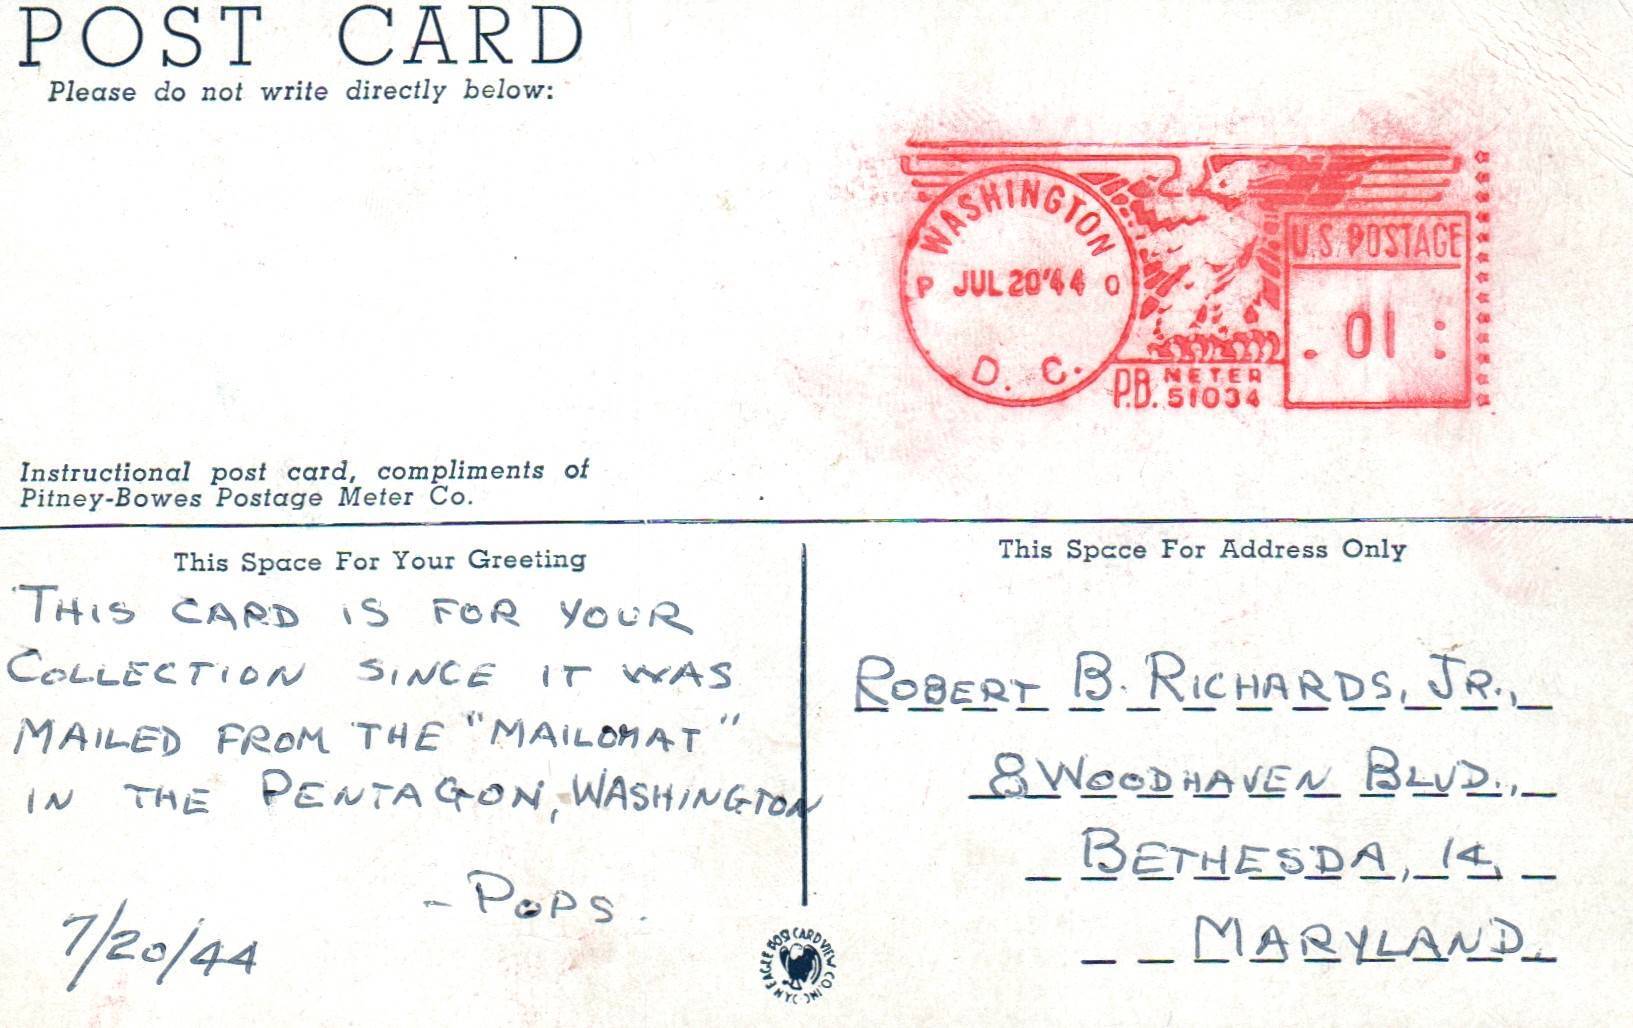 POST CARD
Please do not write directly below:
WASHINGTON
P JUL 20 '44 O
D. C.
U.S. POSTAGE
. 01 :
P.B. METER
51034
Instructional post card, compliments of
Pitney-Bowes Postage Meter Co.
This Space For Your Greeting
THIS CARD IS FOR YOUR
COLLECTION SINCE IT WAS
MAILED FROM THE "MAILOMAT"
IN THE PENTAGON, WASHINGTON
- POPS.
7/20/44
This Space For Address Only
ROBERT B. RICHARDS, JR.,
8 WOODHAVEN BLVD.,
BETHESDA, 14,
MARYLAND.
EAGLE POST CARD VIEW CO. INC. N.Y.